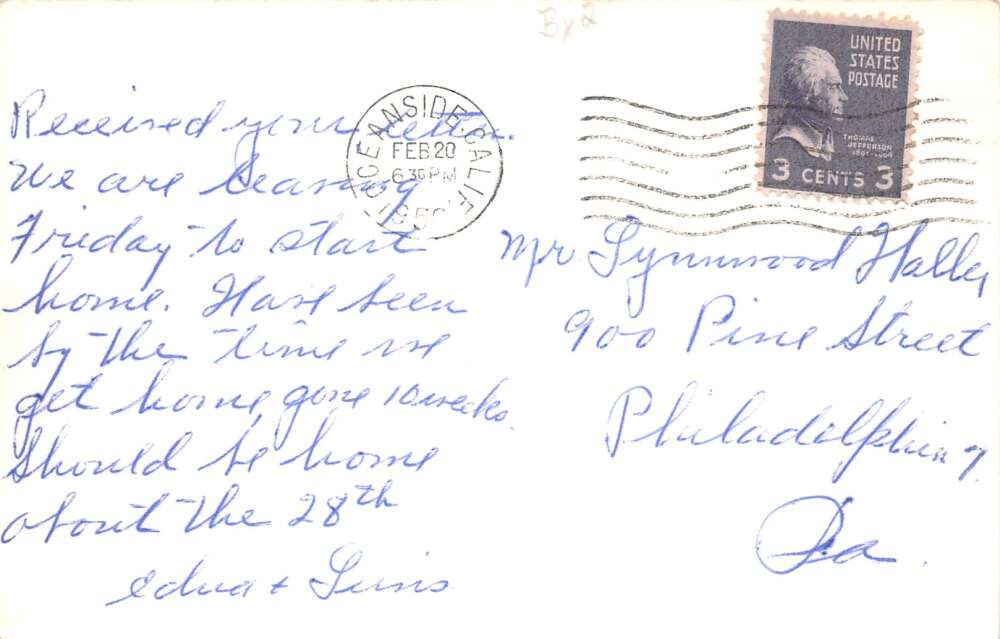 Bx2
UNITED
STATES
POSTAGE
THOMAS
JEFFERSON
1801-1809
3 CENTS 3
OCEANSIDE, CALIF.
FEB 20
6 30 PM
Received your letter.
We are leaving
Friday to start
home. Have been
by the time we
get home, gone 10 weeks.
Should be home
about the 28th
Edna +
Mr Lynnwood Haller
900 Pine Street
Philadelphia 7
Pa.